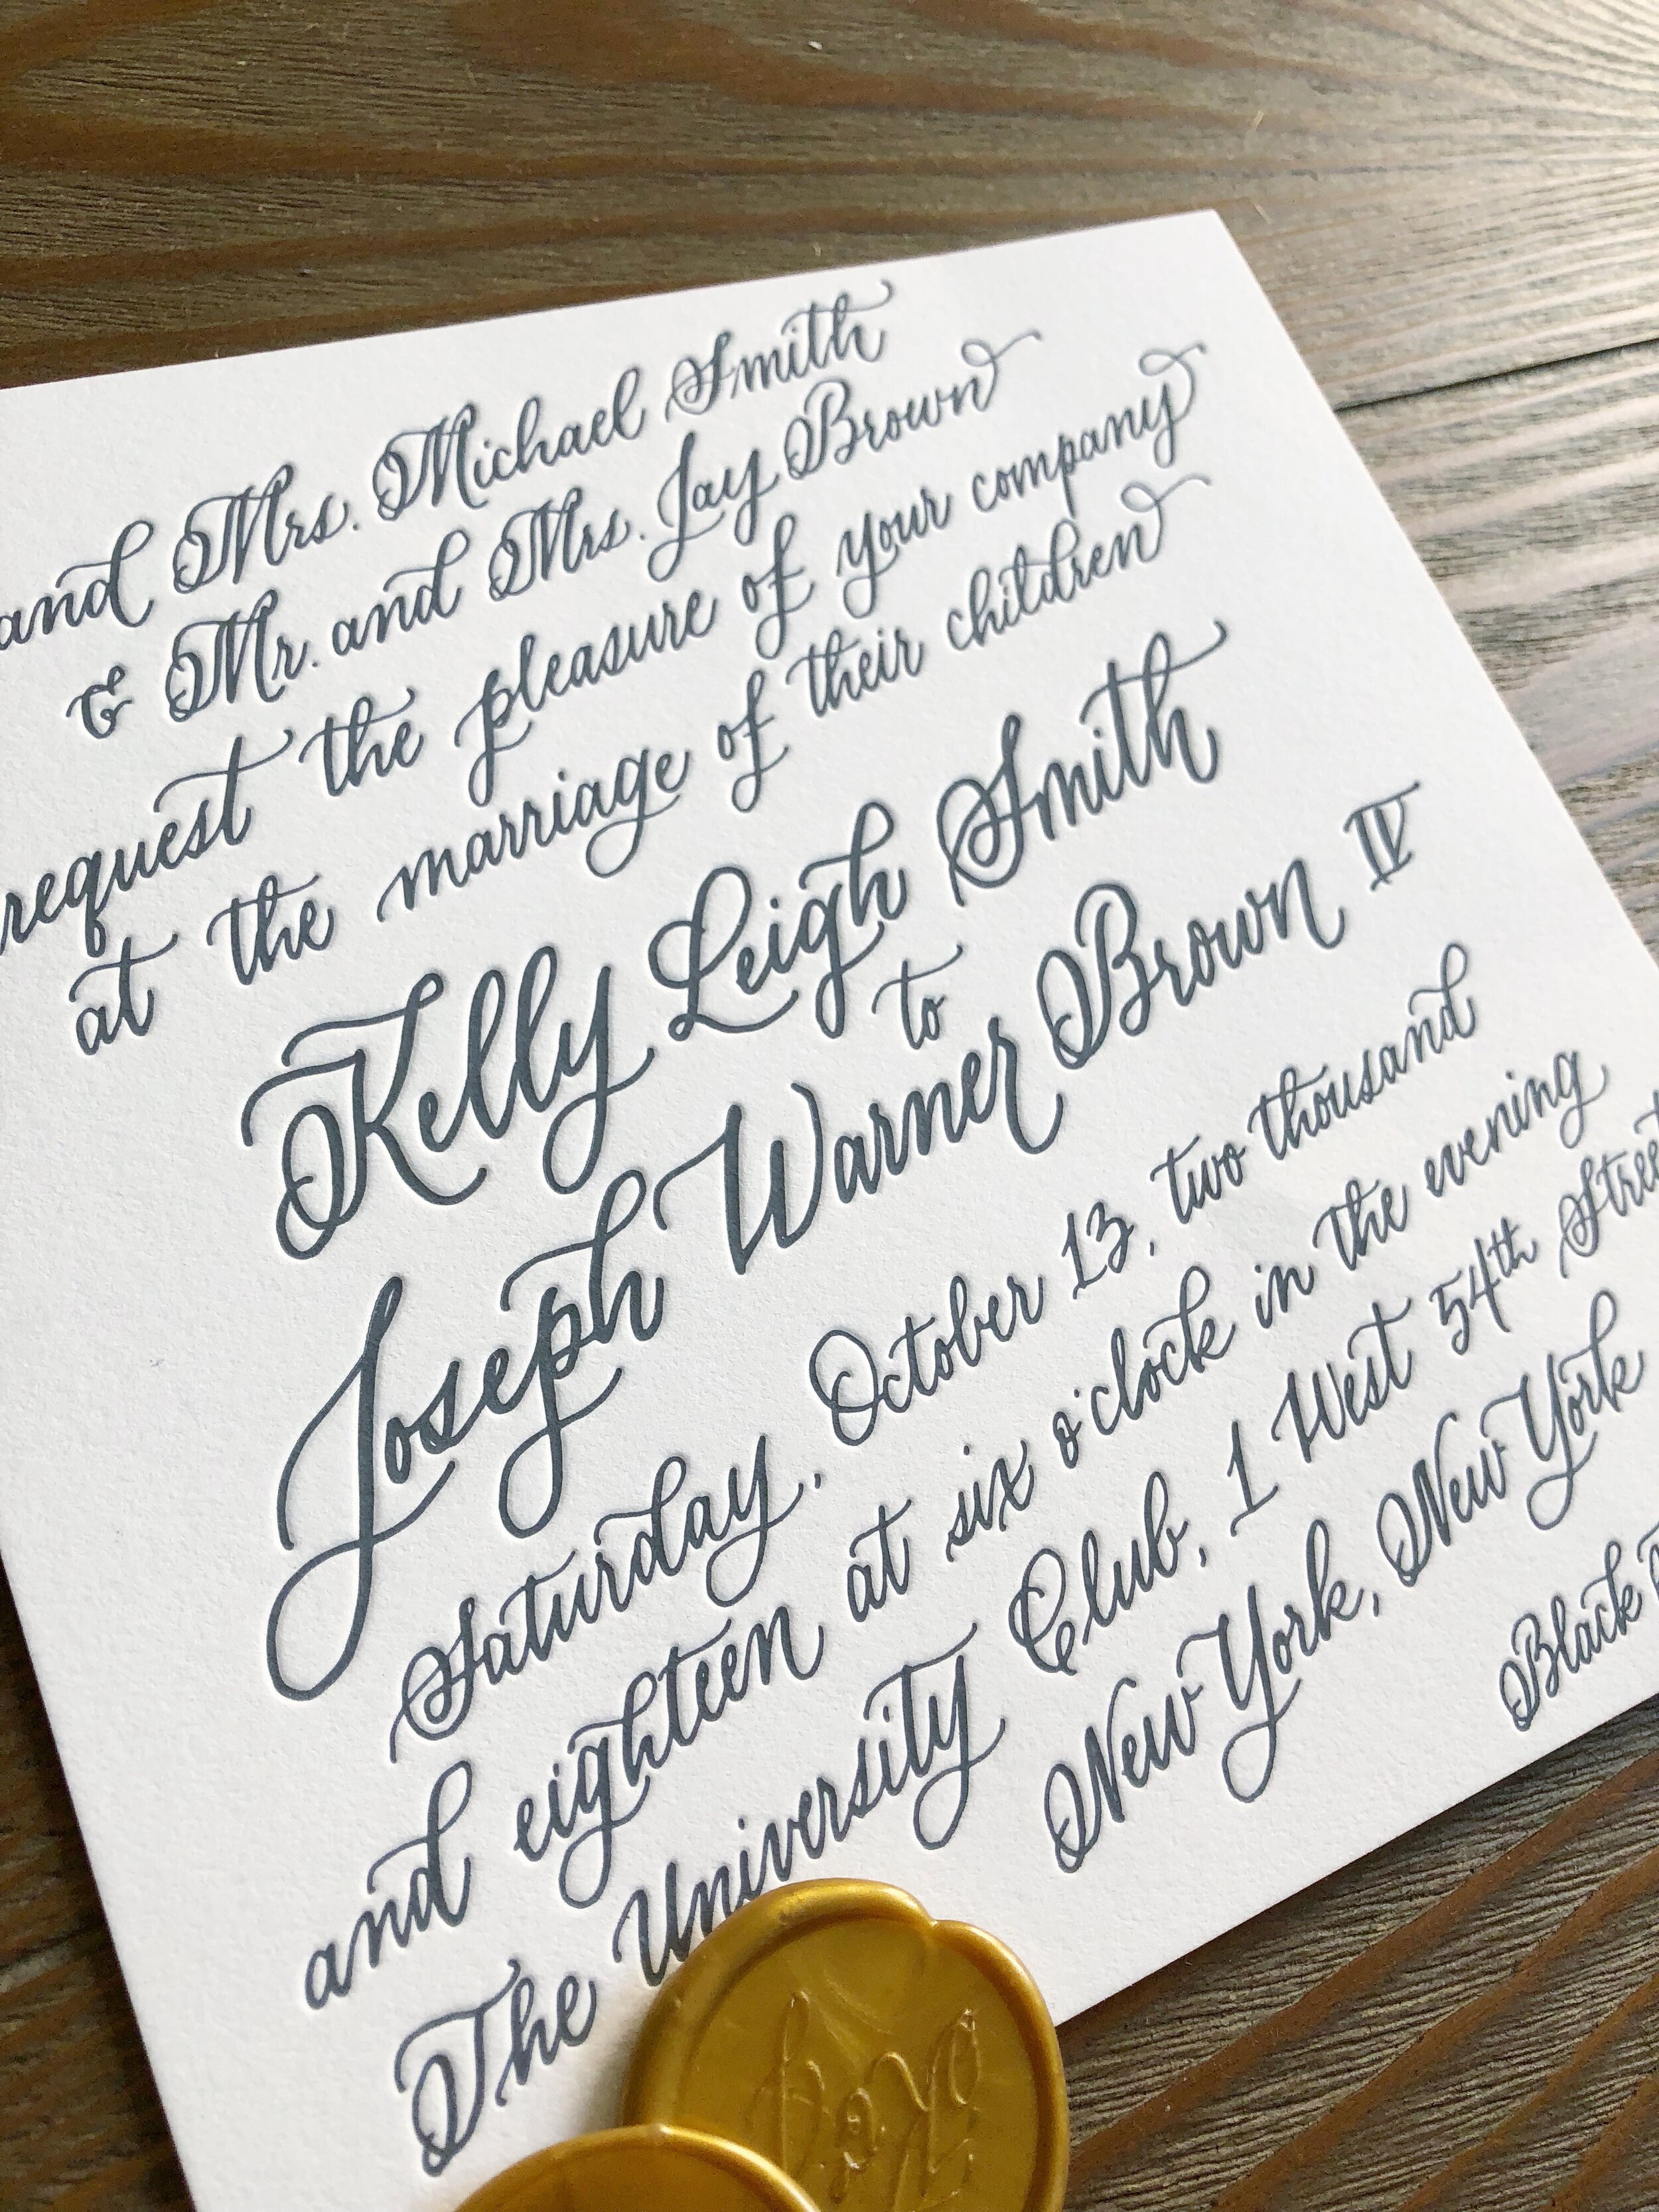 and Mrs. Michael Smith
& Mr. and Mrs. Jay Brown
request the pleasure of your company
at the marriage of their children
Kelly Leigh Smith
to
Joseph Warner Brown IV
Saturday, October 13, two thousand
and eighteen at six o'clock in the evening
The University Club, 1 West 54th Street
New York, New York
Black